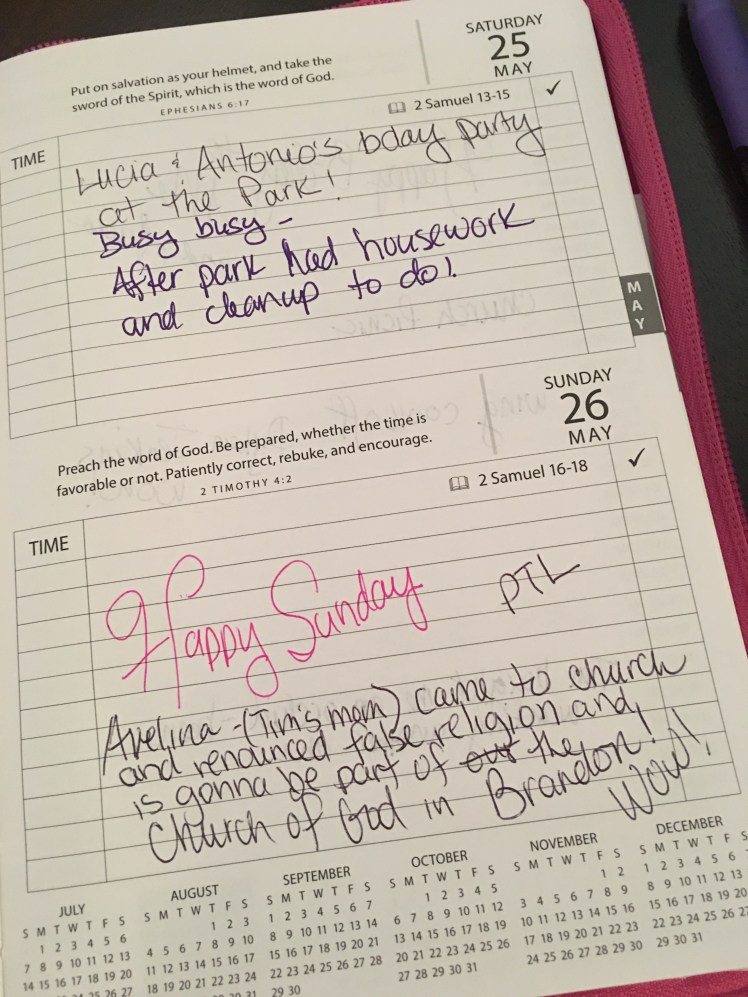 SATURDAY
25
MAY
Put on salvation as your helmet, and take the
sword of the Spirit, which is the word of God.
EPHESIANS 6:17
2 Samuel 13-15 ✓
TIME
Lucia & Antonio's bday party
at the Park!
Busy busy –
After park had housework
and cleanup to do!
M
A
Y
SUNDAY
26
MAY
Preach the word of God. Be prepared, whether the time is
favorable or not. Patiently correct, rebuke, and encourage.
2 TIMOTHY 4:2
2 Samuel 16-18 ✓
TIME
Happy Sunday
PTL
Avelina - (Tim's mom) came to church
and renounced false religion and
is gonna be part of our the
Church of God in Brandon!
Wow!
JULY
S M T W T F S
1 2 3 4 5 6
7 8 9 10 11 12 13
14 15 16 17 18 19 20
25 26 27
AUGUST
S M T W T F S
1 2 3
4 5 6 7 8 9 10
11 12 13 14 15 16 17
18 19 20 21 22 23 24
30 31
SEPTEMBER
S M T W T F S
1 2 3 4 5 6 7
8 9 10 11 12 13 14
15 16 17 18 19 20 21
22 23 24 25 26 27 28
29 30
OCTOBER
S M T W T F S
1 2 3 4 5
6 7 8 9 10 11 12
13 14 15 16 17 18 19
20 21 22 23 24 25 26
27 28 29 30 31
NOVEMBER
S M T W T F S
1 2
3 4 5 6 7 8 9
10 11 12 13 14 15 16
17 18 19 20 21 22 23
24 25 26 27 28 29 30
DECEMBER
S M T W T F S
1 2 3 4 5 6
8 9 10 11 12 13
15 16 17 18 19 20
22 23 24 25 26 27
29 30 31